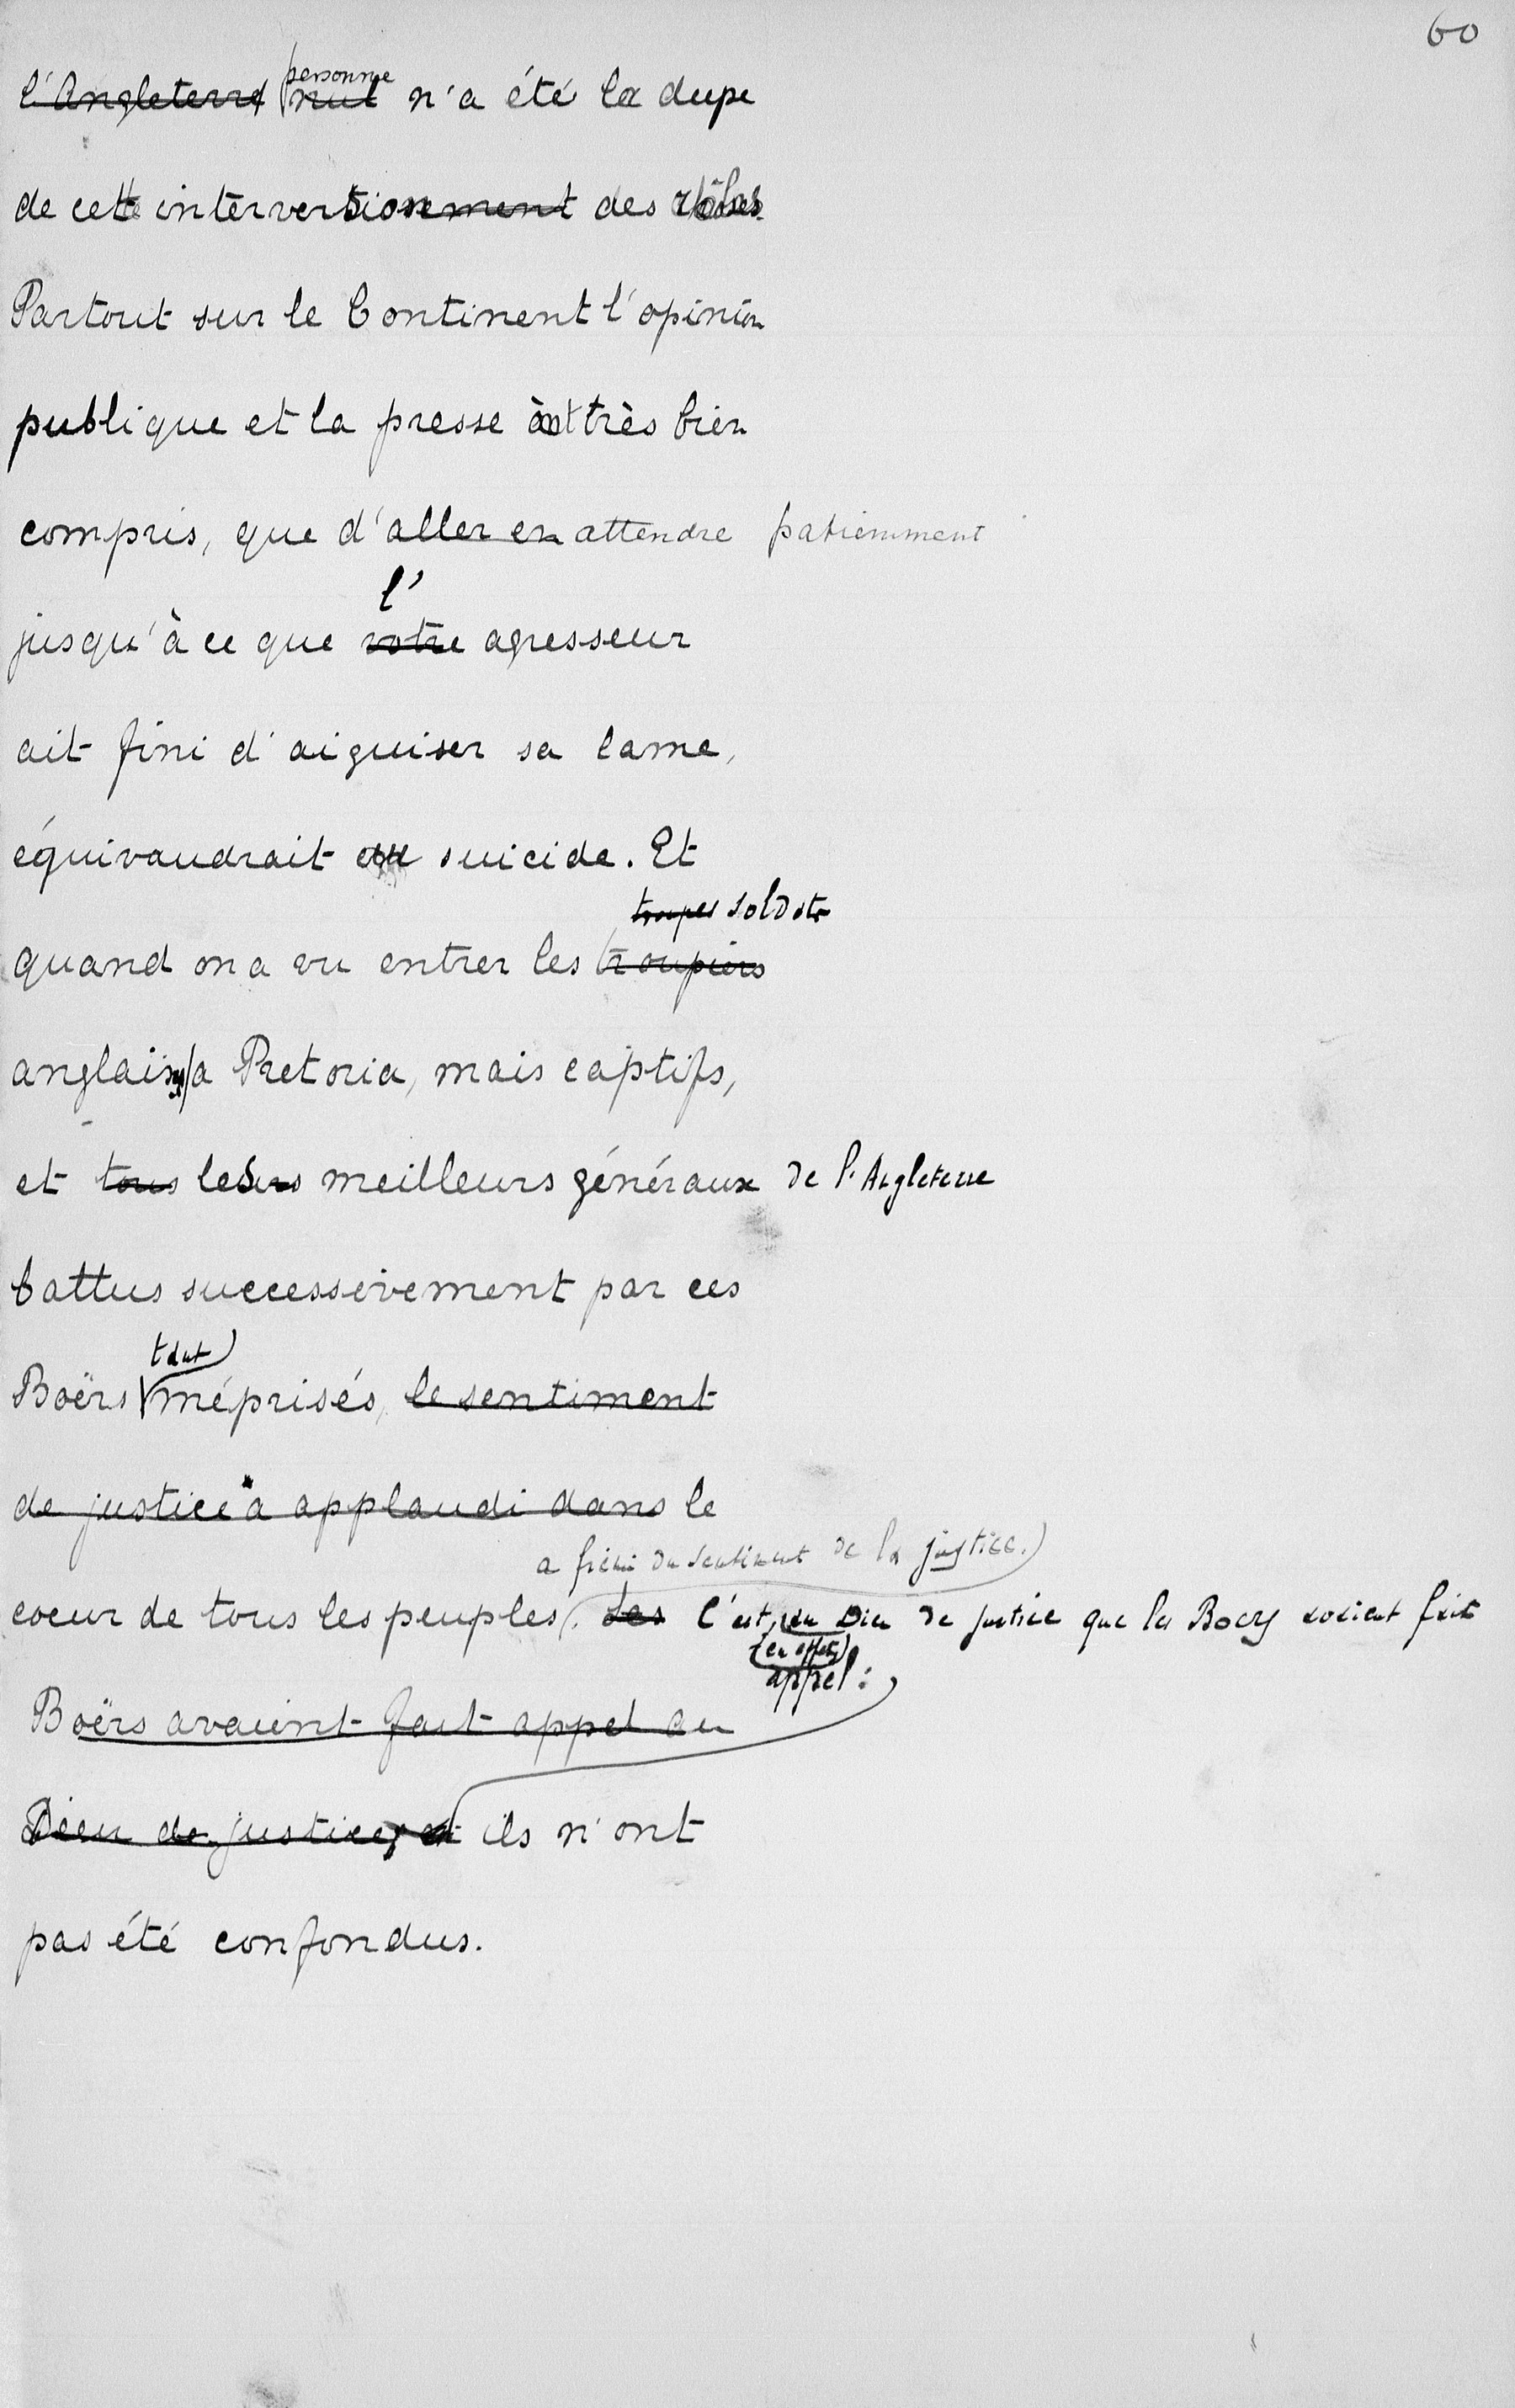 60
personne
l'Angleterre nul n'a été la dupe
de cette interversionement des rôles
Partout sur le Continent l'opinion
publique et la presse ont très bien
compris, que d'aller en attendre patiemment
l'
jusqu'à ce que votre agresseur
ait fini d'aiguiser sa lame,
équivaudrait au suicide. Et
troupes soldats
quand on a vu entrer les troupiers
anglais a Pretoria, mais captifs,
et tous leurs meilleurs généraux de l'Angleterre
battus successivement par ces
tant
Boërs méprisés, le sentiment
de justice a applaudi dans le
a frémi du sentiment de la justice.
coeur de tous les peuples. Les C'est, au Dieu de justice que les Boers avaient fait
(en effet)
appel :
Boërs avaient fait appel au
Dieu de justice, et ils n'ont
pas été confondus.